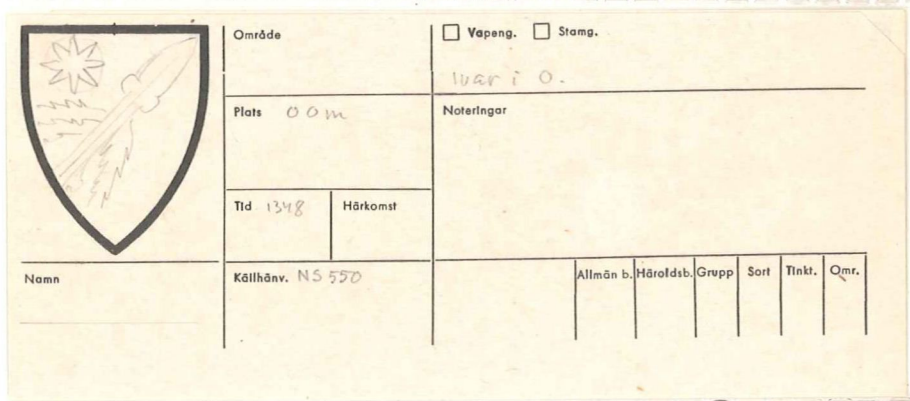 Område
Vapeng. Stamg.
Ivar i O.
Plats OOm
Noteringar
Tid 1348
Härkomst
Namn
Källhänv. NS 550
Allmän b. Häroldsb. Grupp Sort Tinkt. Omr.